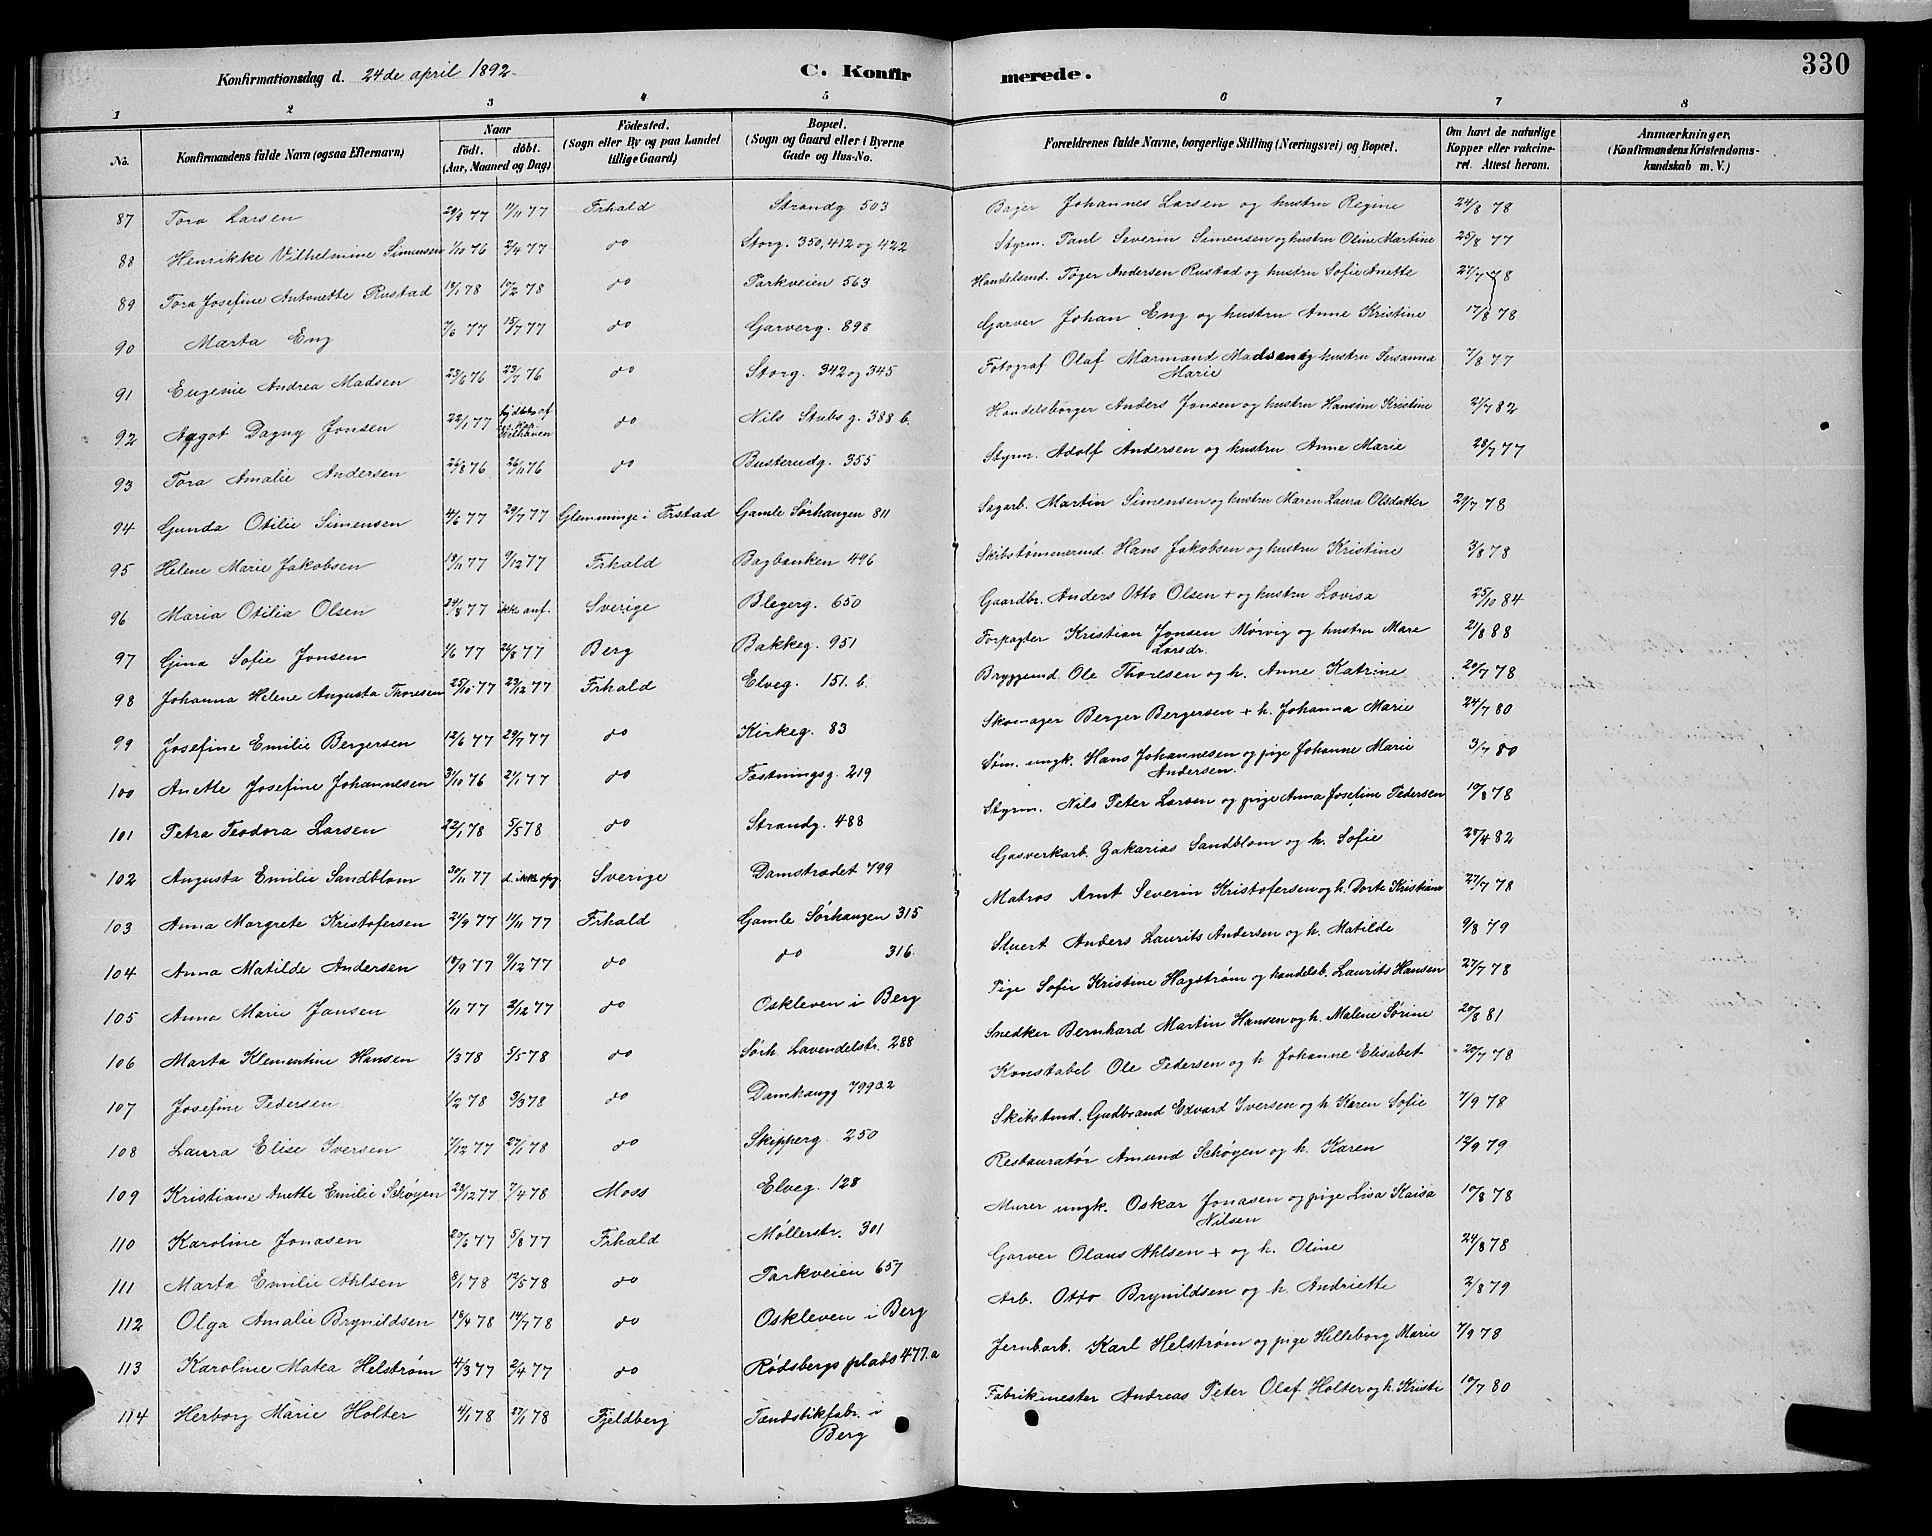 Konfirmationsdag d. 24de april 1892. C. Konfirmerede. 330
1 2 3 4 5 6 7 8
No. Konfirmandens fulde Navn (ogsaa Efternavn) Naar födt. döbt. (Aar, Maaned og Dag) Födested. (Sogn eller By og paa Landet tillige Gaard) Bopæl. (Sogn og Gaard eller i Byerne Gade og Hus-No. Forældrenes fulde Navne, borgerlige Stilling (Næringsvei) og Bopæl. Om havt de naturlige Kopper eller vakcineret. Attest herom. Anmærkninger. (Konfirmandens Kristendomskundskab m. V.)
87 Tora Larsen 29/9 77 11/11 77 Frhald Strandg 503 Bager Johannes Larsen og hustru Regine 24/8 78
88 Henrikke Vilhelmine Simensen 1/10 76 2/4 77 do Storg. 350, 412 og 422 Styrm. Paul Severin Simensen og hustru Oline Martine 25/8 77
89 Tora Josefine Antonette Rustad 19/1 78 17/2 78 do Parkveien 563 Handelsmd. Töger Andersen Rustad og hustru Sofie Anette 27/7 78
90 Marta Eng 7/6 77 15/7 77 do Garverg. 898 Garver Johan Eng og hustru Anne Kristine 17/8 78
91 Eugenie Andrea Madsen 25/6 76 23/7 76 do Storg. 342 og 345 Fotograf Olaf Marmand Madsen og hustru Susanna Marie 7/8 77
92 Aagot Dagny Jonsen 22/1 77 do Nils Stubs g. 388 b. Handelsborger Anders Jonsen og hustru Hansine Kristine 21/7 82
93 Tora Amalie Andersen 26/8 76 26/11 76 do Busterudg. 355 Styrm. Adolf Andersen og hustru Anne Marie 28/7 77
94 Gunda Otilie Simensen 4/6 77 29/7 77 Glemminge i Frstad Gamle Sørhaugen 811 Sagarb. Martin Simensen og hustru Maren Laura Olsdatter 20/7 78
95 Helene Marie Jakobsen 18/11 77 9/12 77 Frhald Bagbanken 496 Skibstømmermd. Hans Jakobsen og hustru Kristine 3/8 78
96 Maria Otilia Olsen 24/8 77 ikke anf. Sverige Blegerg. 650 Gaardbr. Anders Otto Olsen + og hustru Lovisa 25/10 84
97 Gina Sofie Jonsen 1/6 77 26/8 77 Berg Bakkeg. 951 Forpagter Kristian Jonsen Mørvig og hustru Mare Larsdr. 21/8 88
98 Johanna Helene Augusta Thoresen 25/10 77 23/12 77 Frhald Elveg. 151. b. Bryggemd. Ole Thoresen og h. Anne Katrine 20/7 78
99 Josefine Emilie Bergersen 12/6 77 29/7 77 do Kirkeg. 83 Skomager Berger Bergersen + h. Johanna Marie 24/7 80
100 Anette Josefine Johannesen 3/10 76 21/1 77 do Fæstningsg. 219 Søm. ungk. Hans Johannesen og pige Johanne Marie Andersen. 3/7 80
101 Petra Teodora Larsen 22/1 78 5/5 78 do Strandg. 488 Styrm. Nils Peter Larsen og pige Anna Josefine Pedersen 10/8 78
102 Augusta Emilie Sandblom 30/11 77 d. ikke opg Sverige Damstrædet 799 Gasverkarb. Zakarias Sandblom og h. Sofie 25/4 82
103 Anna Margrete Kristofersen 21/9 77 11/11 77 Frhald Gamle Sørhaugen 315 Matros Arnt Severin Kristofersen og h. Dorte Kristiane 27/7 78
104 Anna Matilde Andersen 19/9 77 9/12 77 do do 316. Stuert Anders Laurits Andersen og h. Matilde 9/8 79
105 Anna Marie Jansen 1/11 77 2/12 77 do Oskleven i Berg Pige Sofie Kristine Hagstrøm og handelsb. Laurits Hansen 27/7 78
106 Marta Klementine Hansen 1/3 78 5/5 78 do Sørh. Lavendelstr. 288 Snedker Bernhard Martin Hansen og h. Malene Sørine 20/8 81
107 Josefine Pedersen 1/2 78 3/3 78 do Damhaugg 799 3.2 Konstabel Ole Pedersen og h. Johanne Elisabet 20/7 78
108 Laura Elise Iversen 7/12 77 27/1 78 do Skipperg. 250 Skibstmd. Gudbrand Edvard Iversen og h. Karen Sofie 7/9 78
109 Kristiane Anette Emilie Schøyen 28/12 77 7/4 78 Moss Elveg. 128 Restauratør Amund Schøyen og h. Karen 13/9 79
110 Karoline Jonasen 20/6 77 5/8 77 Frhald Møllerstr. 301 Murer ungk. Oskar Jonasen og pige Lisa Kaisa Nilsen 10/8 78
111 Marta Emilie Ahlsen 8/1 78 12/5 78 do Parkveien 657 Garver Olaus Ahlsen + og h. Oline 24/8 78
112 Olga Amalie Brynildsen 18/4 78 14/7 78 do Oskleven i Berg Arb. Otto Brynildsen og h. Andriette 2/8 79
113 Karoline Matea Helstrøm 4/3 77 2/4 77 do Rødsbergs plads 477. a Jernbarb. Karl Helstrøm og pige Hilleborg Marie 7/9 78
114 Herborg Marie Holter 4/1 78 27/1 78 Fjeldberg Tændstikfabr. i Berg Fabrikmester Andreas Peter Olaf Holter og h. Kristi 10/7 80